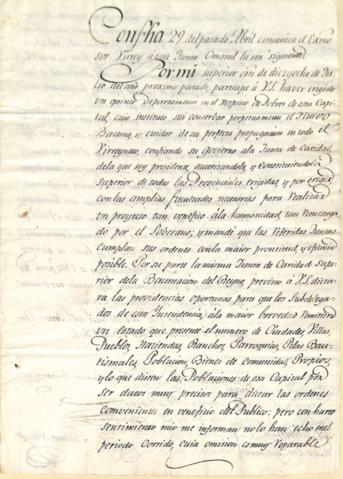 Con fha 29 del pasado Abril comunica el Exmo
sor Virrey, a esa Junta Central la orn. siguiente
Por mi superior orn. de diez y ocho de Ju
lio del año proximo pasado, participé a V.S. haver erigido
un quinto Departamento en el Hospicio de Pobres de esta Ca
pital, cuio instituto sea conservar perpetuamente el Fluido
Bacuno, y cuidar de su perfecta propagacion en todo el
Virreynato, confiando su Govierno a la Junta de Caridad
de la que soy presidente, autorizandola, y Constituiendola
Superior de todas las Provinciales erigidas, y por erigir
con las amplias facultades necesarias para realizar
un proyecto tan venefico a la humanidad, tan encarga
do por el Soberano; y mandé que las referidas Juntas
Cumplan sus ordenes con la maior prontitud, y eficacia
posible. Por su parte la misma Junta de Caridad Supe
rior de la Bacunacion del Reyno, previno a V.S. dictara
las providencias oportunas para que los Subdelega
dos de esa Intendencia, a la maior brevedad remitieran
un estado que presente el numero de Ciudades, Villas
Pueblos, Haciendas, Ranchos, Parroquias, Pilas Bau
tismales, Poblacion, Bienes de Comunidad, Propios,
y lo que distan las Poblaciones de esa Capital por
ser datos muy precisos para dictar las ordenes
Convenientes en veneficio del Publico: pero con harto
sentimiento mio me informan no lo han echo en el
periodo Corrido, cuia omision es muy reparable